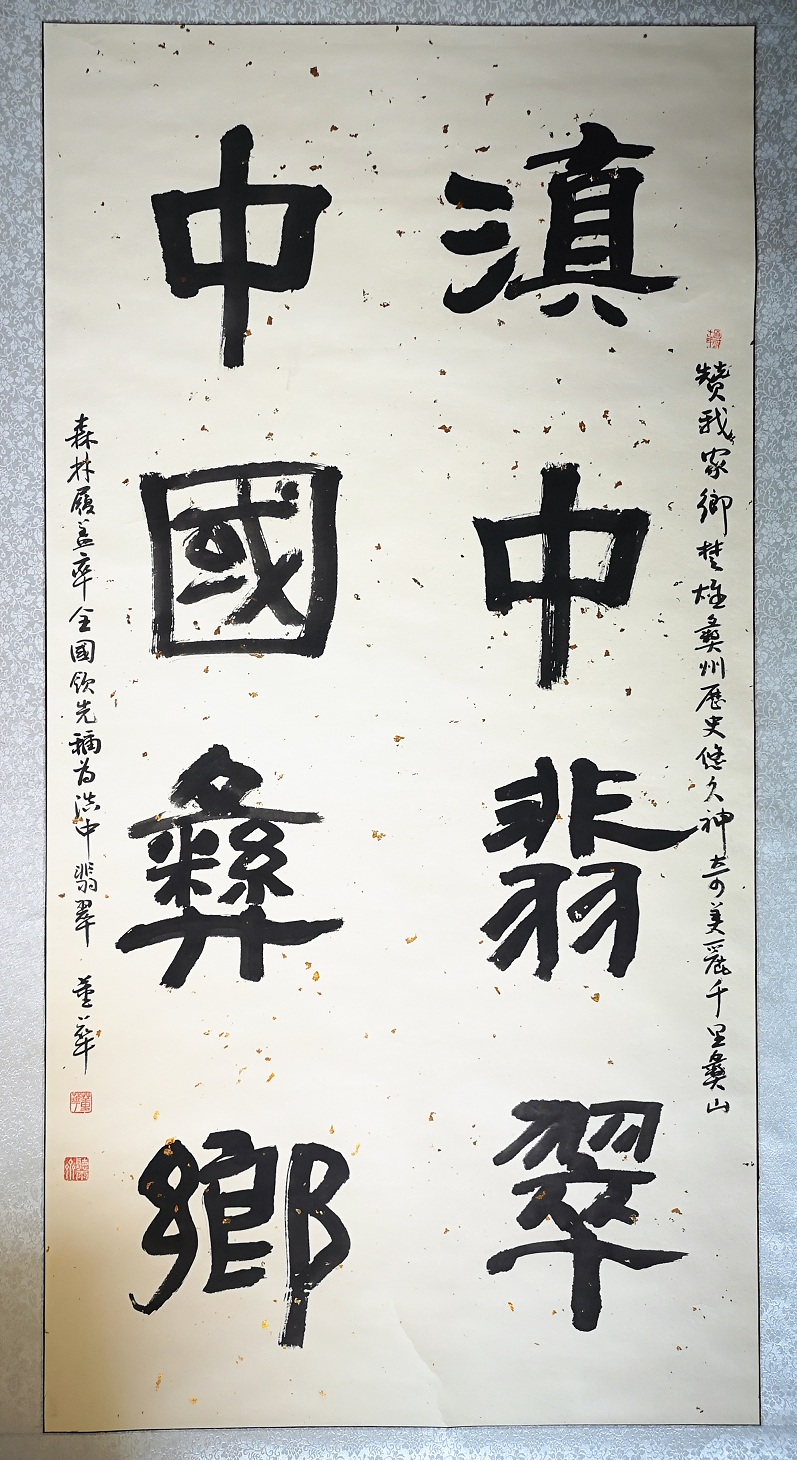 贊我家鄉楚雄彝州歷史悠久神奇美麗千里彝山
滇中翡翠
中國彝鄉
森林覆盖率全國領先稱为滇中翡翠 董華